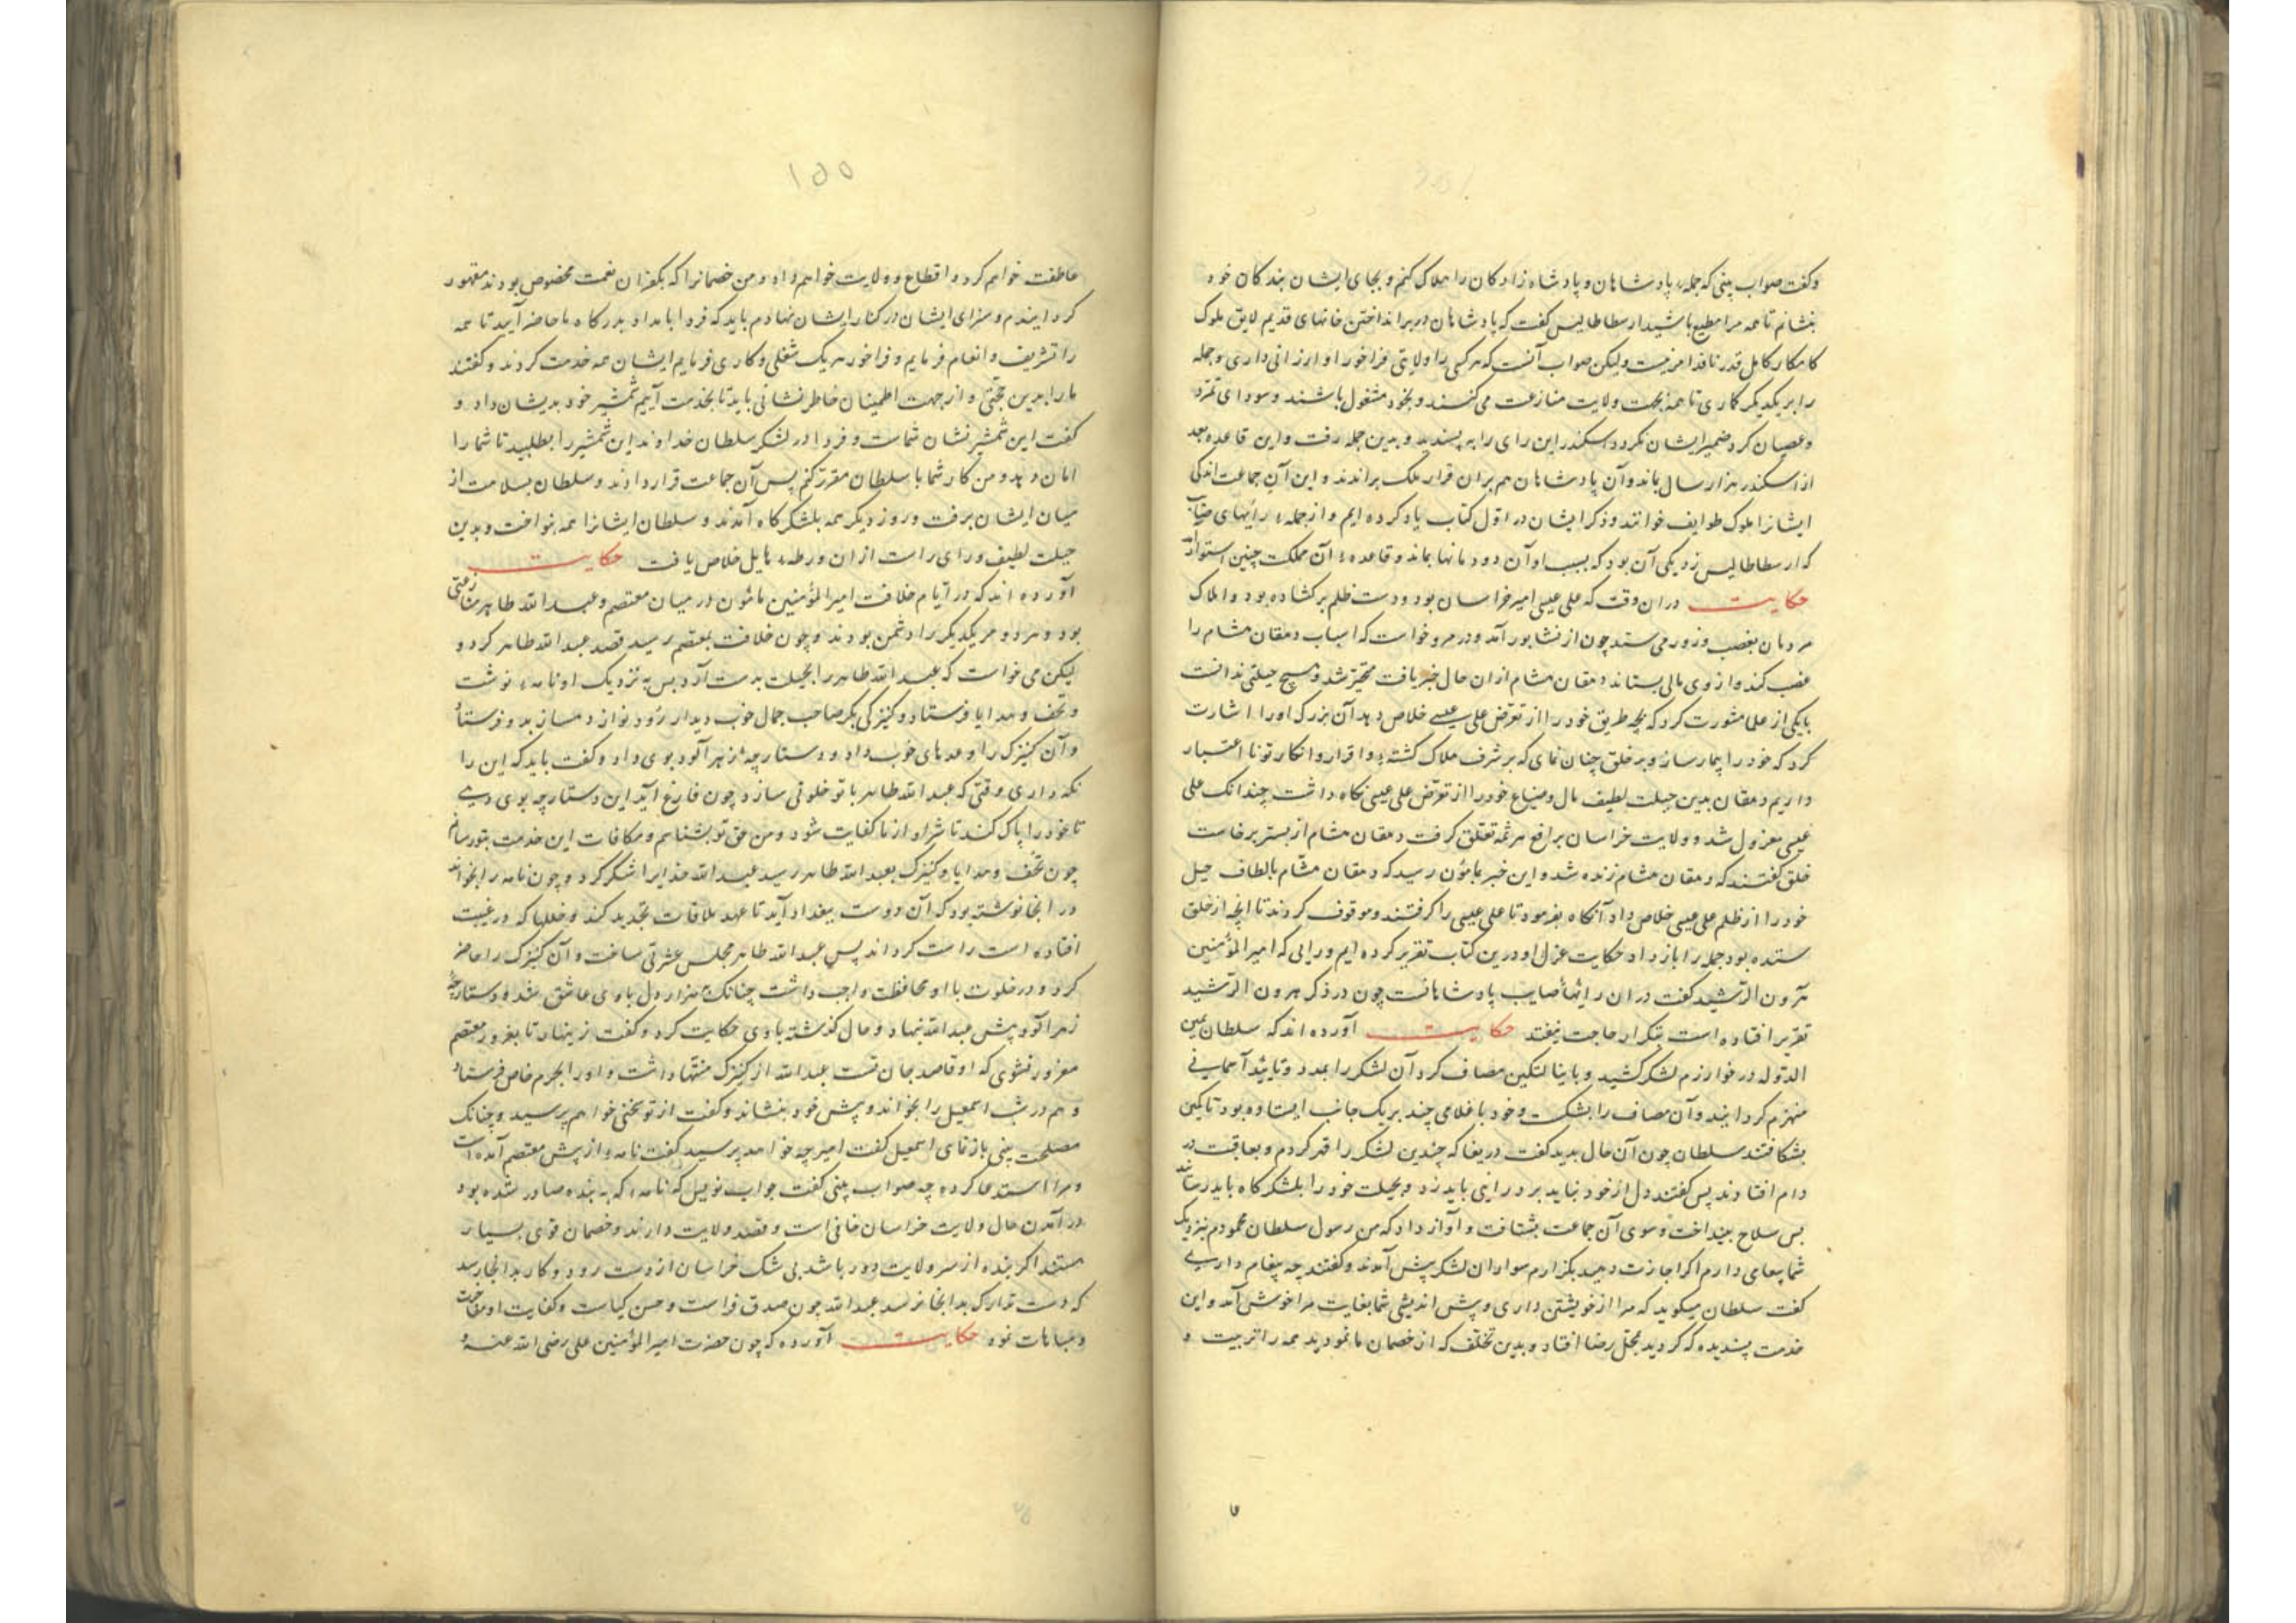 و گفت صواب بینی که جمله پادشاهان و پادشاه زادگان را هلاک کنم و بجای ایشان بندکان خود
بنشانم تا همه مرا مطیع باشند ارسطاطالیس گفت که پادشاهان در برانداختن خانهای قدیم لایق ملوک
کامکار کامل قدر نافذ امر نیست ولیکن صواب آنست که هر کسی را ولایتی فراخور او ارزانی داری و جمله
را بر یکدیگر کاری تا همه بجهت ولایت منازعت می کنند و بخود مشغول باشند و سودای تمرّد
و عصیان کرد ضمیر ایشان نکردد اسکندر این رای را به پسندید و بدین جمله رفت و این قاعده بعد
از اسکندر هزار سال بماند و آن پادشاهان هم بران قرار ملک براندند و این آن جماعت اندکی
ایشانرا ملوک طوایف خوانند و ذکر ایشان در اوّل کتاب یاد کرده ایم و از جمله رأیهای صایب
که ارسطاطالیس زد یکی آن بود که بسبب او آن دودمانها بماند و قاعده آن مملکت چنین استوار
حکایت دران وقت که علی عیسی امیر خراسان بود و دست ظلم برکشاده بود و املاک
مردمان بغصب و زور می ستد چون از نشابور آمد و در مرو خواست که اسباب دهقان هشام را
غصب کند و از وی مالی بستاند دهقان هشام ازان حال خبر یافت متحیّر شد و هیچ حیلتی ندانست
با یکی از علما مشورت کرد که بچه طریق خود را از تعرّض علی عیسی خلاص دهد آن بزرک او را اشارت
کرد که خود را بیمار ساز و به خلق چنان نمای که بر شرف هلاک کشته و اقرار و انکار تو نا اعتبار
داریم دهقان بدین حیلت لطیف مال و ضیاع خود را از تعرّض علی عیسی نکاه داشت چندانک علی
عیسی معزول شد و ولایت خراسان برافع هرثمه تعلّق کرفت دهقان هشام از بستر برخاست
خلق گفتند که دهقان هشام زنده شد و این خبر بمامون رسید که دهقان هشام بالطاف حیل
خود را از ظلم علی عیسی خلاص داد آنکاه بفرمود تا علی عیسی را کرفتند و موقوف کردند تا انچه از خلق
ستده بود جمله را باز داد و حکایت عزل او درین کتاب تقریر کرده ایم و رایی که امیر المؤمنین
هرون الرّشید گفت دران رایهأ صایب پادشاهانست چون در ذکر هرون الرّشید
تقریر افتاده است بتکرار حاجت نیفتد حکایت آورده اند که سلطان یمین
الدوله در خوارزم لشکر کشید و با ینالتکین مصاف کرد آن لشکر را بمدد و تایید آسمانی
منهزم کردانید و آن مصاف را بشکست و خود با غلامی چند بر یک جانب ایستاده بود تا کمین
بشکافتند سلطان چون آن حال بدید گفت دریغا که چندین لشکر را قهر کردم و بعاقبت در
دام افتادند پس گفتند دل از خود نباید برد رایی باید زد و بحیلت خود را بلشکرکاه باید رسانید
پس سلاح بینداخت و سوی آن جماعت بشتافت و آواز داد که من رسول سلطان محمودم بنزدیک
شما پیغامی دارم اکر اجازت دهید بکزارم سواران لشکر پیش آمدند و گفتند چه پیغام داری
گفت سلطان میکوید که مرا از خویشتن داری و پیش اندیشی شما بغایت مرا خوش آمد و این
خدمت پسندیده که کردید بمحل رضا افتاد و بدین تخلّف که از خصمان ما نمودید همه را تربیت و
۱۵۵
عاطفت خواهم کرد و اقطاع و ولایت خواهم داد و من خصمانرا که بکفران نعمت مخصوص بودند مقهور
کردانیدم و سزای ایشان در کنار ایشان نهادم باید که فردا بامداد بدرکاه ما حاضر آیید تا همه
را تشریف و انعام فرمایم و فراخور هر یک شغلی و کاری فرمایم ایشان همه خدمت کردند و گفتند
ما را بدین حجّتی و از جهت اطمینان خاطر نشانی باید تا بخدمت آییم شمشیر خود بدیشان داد و
گفت این شمشیر نشان شماست و فردا در لشکر سلطان خداوند این شمشیر را بطلبید تا شما را
امان دهد و من کار شما با سلطان مقرر کنم پس آن جماعت قرار دادند و سلطان بسلامت از
میان ایشان برفت و روز دیگر همه بلشکرکاه آمدند و سلطان ایشانرا همه بنواخت و بدین
حیلت لطیف و رای راست ازان ورطه هایل خلاص یافت حکایت
آورده اند که در ایّام خلافت امیر المؤمنین مامون در میان معتصم و عبد الله طاهر منازعتی
بود و هر دو مر یکدیگر را دشمن بودند و چون خلافت بمعتصم رسید قصد عبد الله طاهر کرد و
لیکن می خواست که عبد الله طاهر را بحیلت بدست آرد پس به نزدیک او نامه نوشت
و تحف و هدایا فرستاد و کنیزکی بکر صاحب جمال خوب دیدار رود نواز دمساز بدو فرستاد
و آن کنیزک را وعدهای خوب داد و دستارچه زهر آلود بوی داد و گفت باید که این را
نکه داری وقتی که عبد الله طاهر با تو خلوتی سازد چون فارغ آید این دستارچه بوی دهی
تا خود را پاک کند تا شر او از ما کفایت شود و من حق تو بشناسم و مکافات این خدمت بتو رسانم
چون تحف و هدایا و کنیزک بعبد الله طاهر رسید عبد الله خدایرا شکر کرد و چون نامه را بخواند
در انجا نوشته بود که آن دوست ببغداد آید تا عهد ملاقات تجدید کند و خللها که در غیبت
افتاده است راست کرداند پس عبد الله طاهر مجلس عشرتی ساخت و آن کنیزک را حاضر
کرد و در خلوت با او محافظت واجب داشت چنانک بهزار دل با وی عاشق شد و دستارچه
زهر آلود پیش عبد الله نهاد و حال کذشته با وی حکایت کرد و گفت زینهار تا بغرور معتصم
مغرور نشوی که او قاصد جان تست عبد الله از کنیزک منتها داشت و او را بحرم خاص فرستاد
و هم در شب اسمعیل را بخواند و پیش خود بنشاند و گفت از تو سخنی خواهم پرسید و چنانک
مصلحت بینی باز نمای اسمعیل گفت امیر چه خواهد پرسید گفت نامه از پیش معتصم آمده است
و مرا استدعا کرده چه صواب بینی گفت جواب نویس که نامه که به بنده صادر شده بود
در آمدن حال ولایت خراسان خافی است و قصد ولایت دارند و خصمان قوی بسیار
هستند اکر بنده از سر ولایت دور باشد بی شک خراسان از دست رود و کار بدانجا رسد
که دست تدارک بدانجا نرسد عبد الله چون صدق فراست و حسن کیاست و کفایت او
و مباهات نمود حکایت آورده که چون حضرت امیر المؤمنین علی رضی الله عنه و